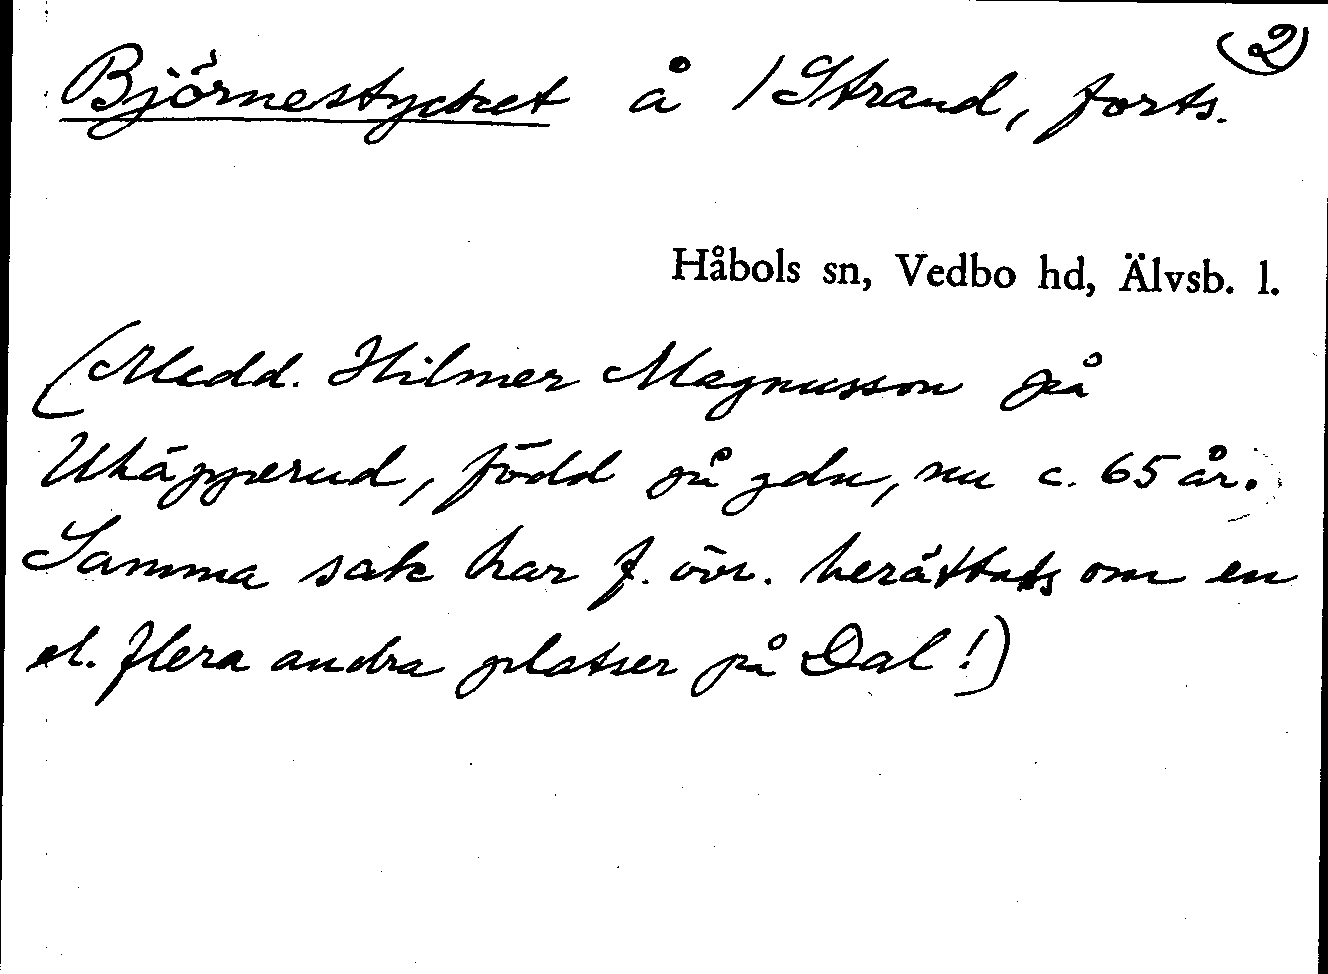 2
Björnestycket å 1 Strand, forts.
Håbols sn, Vedbo hd, Älvsb. l.
(Medd. Hilmer Magnusson på
Ukäpperud, född på gdn, nu c. 65 år.
Samma sak har f. övr. berättats om en
el. flera andra platser på Dal!)